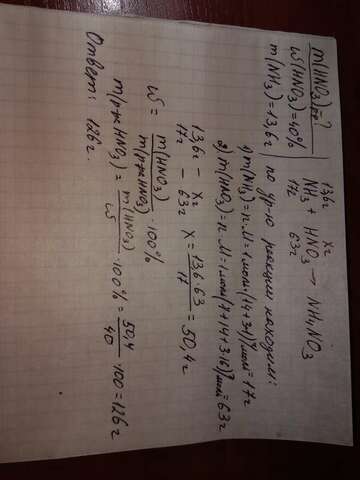 m(HNO₃)р-р=?
W(HNO₃)=40%
m(NH₃)=13,6г
13,6г х г
NH₃ + HNO₃ → NH₄NO₃
17г 63г
по ур-ю реакции находим:
1) m(NH₃)=n·M=1моль·(14+3·1)г/моль=17г
2) m(HNO₃)=n·M=1моль(1+14+3·16)г/моль=63г
13,6г – х г
17г – 63г х = 13,6·63/17 = 50,4г
W = m(HNO₃)/m(р-раHNO₃) ·100%
m(р-раHNO₃) = m(HNO₃)/W ·100% = 50,4/40 ·100=126г
Ответ: 126г.